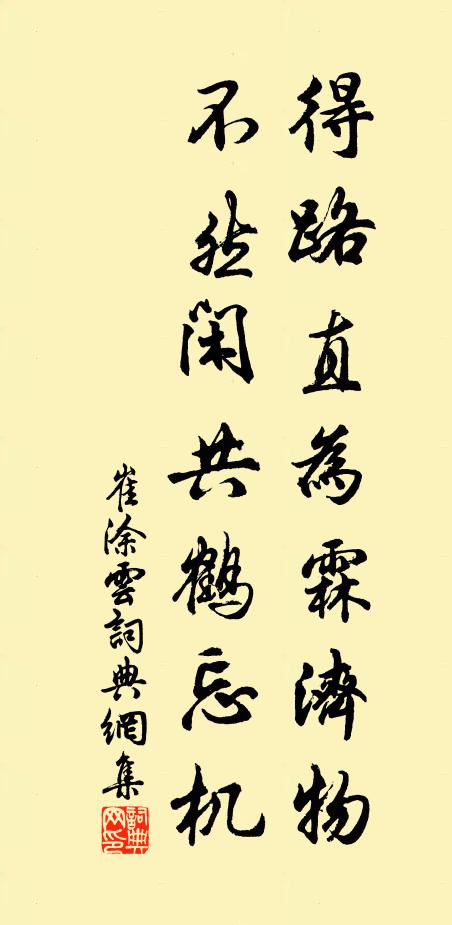 得路直為霖濟物
不然閑共鶴忘机
崔涂雲詞典網集
詞典网印